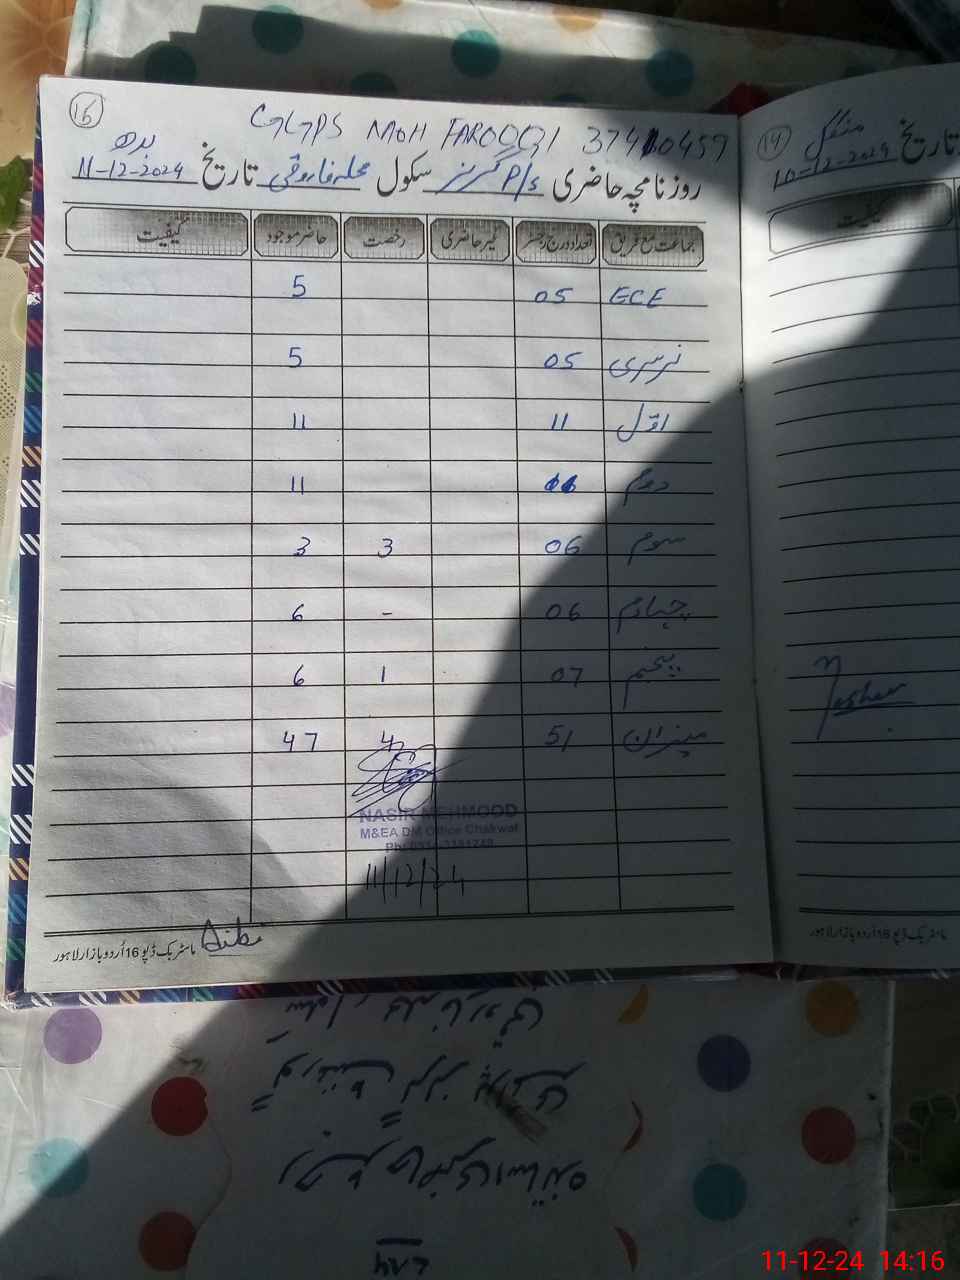 16
GGPS MOH FAROOQI 37410459
بدھ
روزنامچہ حاضری گرلز P/s سکول محلہ فاروقی تاریخ 11-12-2024
جماعت مع فریق تعداد درج رجسٹر غیر حاضری رخصت حاضر موجود کیفیت
ECE 05 5
نرسری 05 5
اول 11 11
دوم 11 11
سوم 06 3 3
چہارم 06 - 6
پنجم 07 1 6
میزان 51 4 47
NASIR MEHMOOD
M&EA DM Office Chakwal
11/12/24
ماسٹر بک ڈپو 16 اُردو بازار لاہور
14
منگل
تاریخ 10-12-2024
کیفیت
ماسٹر بک ڈپو 16 اُردو بازار لاہور
11-12-24 14:16